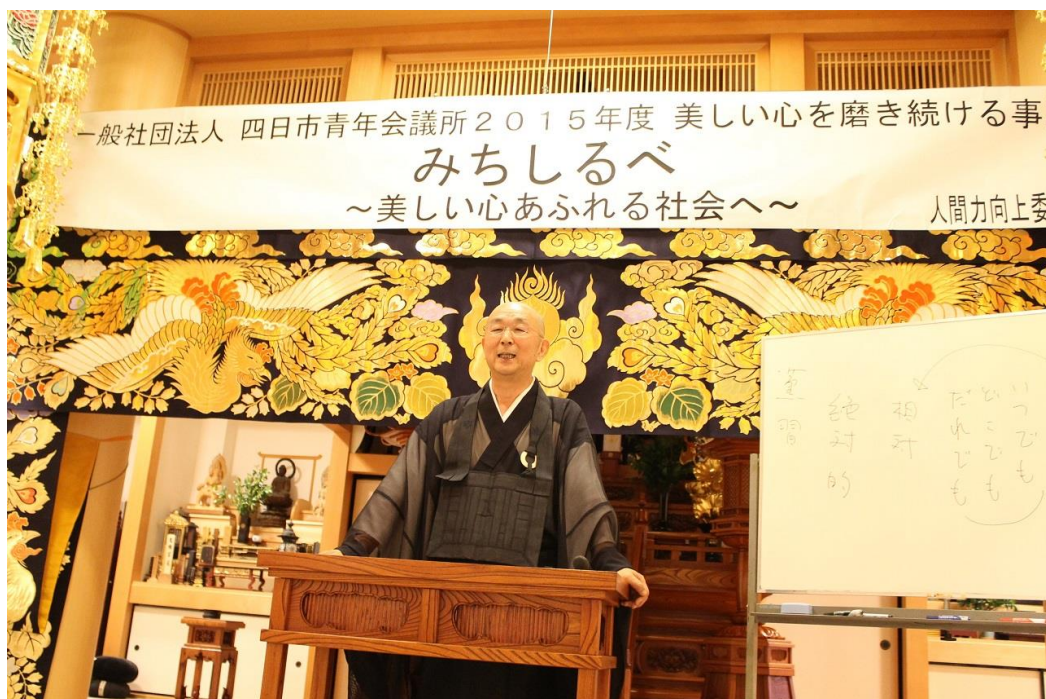 一般社団法人 四日市青年会議所2015年度 美しい心を磨き続ける事
みちしるべ
～美しい心あふれる社会へ～
人間力向上委
いつでも
どこでも
だれでも
相対
絶対的
薫習